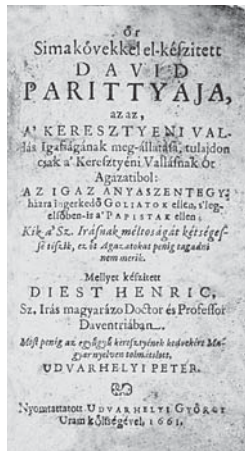 Őt
Simakővekkel el-készitett
DAVID
PARITTYAJA,
az az,
A' KERESZTYENI VAL-
lás Igaſságának meg-állatáſa, tulajdon
csak a' Keresztyéni Vallásnak őt
Agazatibol:
AZ IGAZ ANYASZENTEGY-
házra ingerkedő GOLIATOK ellen, s' leg-
elſőben-is a' PAPISTAK ellen;
Kik a' Sz. Iráſnak méltoságát kétségeſ-
ſé tiſzik, ez őt Agazatokat penig tagadni
nem merik.
Mellyet kéſzitett
DIEST HENRIC,
Sz. Irás magyarázo Doctor és Profeſſor
Daventriában.
Moſt penig az együgyű kereſztyének kedvekért Ma-
gyar nyelven tolmátſolott,
UDVARHELYI PETER.
Nyomtattatott UDVARHELYI GYÖRGY
Uram kőltſégével, 1661.